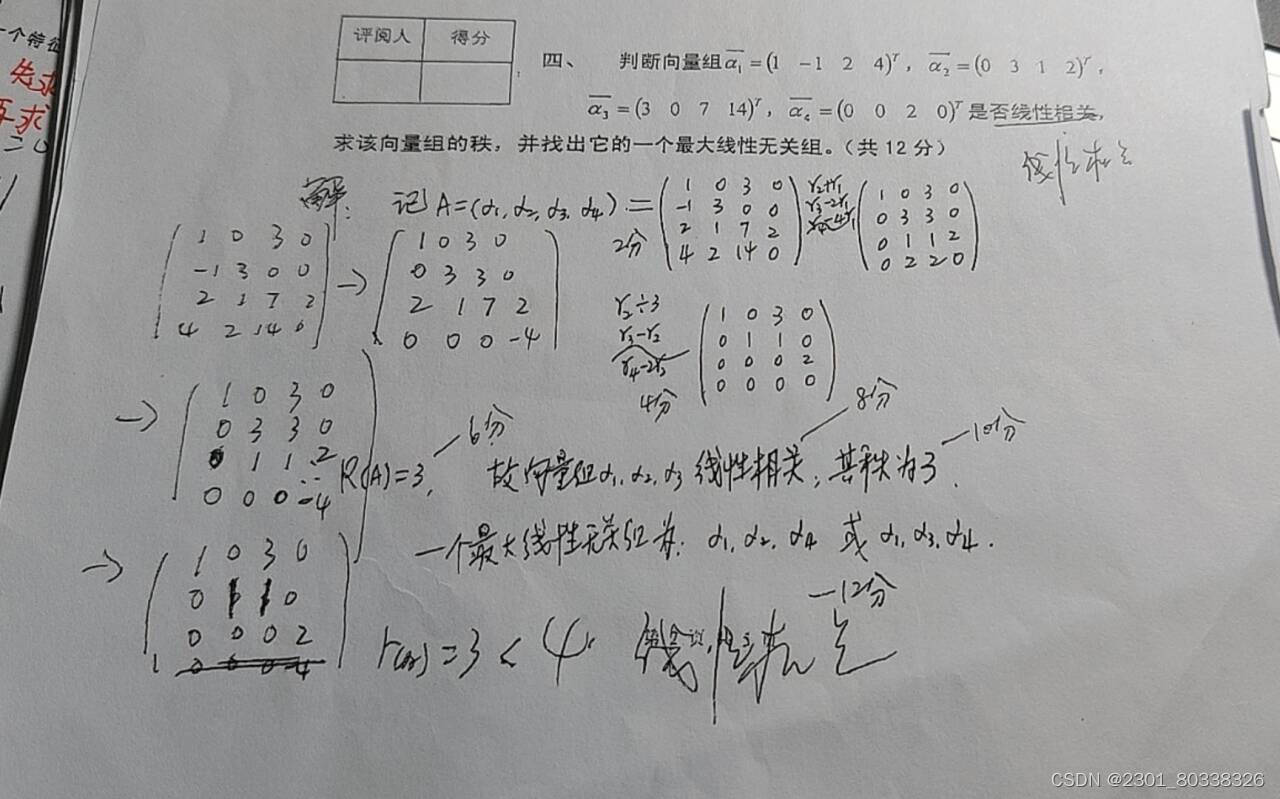 个特征
先求
再求
评阅人 得分
四、 判断向量组α₁=(1 -1 2 4)ᵀ, α₂=(0 3 1 2)ᵀ,
α₃=(3 0 7 14)ᵀ, α₄=(0 0 2 0)ᵀ是否线性相关,
求该向量组的秩, 并找出它的一个最大线性无关组。(共12分)
线性相关
解: 记A=(α₁,α₂,α₃,α₄)=
1 0 3 0
-1 3 0 0
2 1 7 2
4 2 14 0
2分
r₂+r₁
r₃-2r₁
r₄-4r₁
1 0 3 0
0 3 3 0
0 1 1 2
0 2 2 0
r₂÷3
r₃-r₂
r₄-2r₂
4分
1 0 3 0
0 1 1 0
0 0 0 2
0 0 0 0
1 0 3 0
-1 3 0 0
2 1 7 2
4 2 14 0
→
1 0 3 0
0 3 3 0
2 1 7 2
0 0 0 -4
→
1 0 3 0
0 3 3 0
0 1 1 2
0 0 0 -4
R(A)=3, 6分
故向量组α₁,α₂,α₃线性相关, 8分 其秩为3. 10分
一个最大线性无关组为: α₁,α₂,α₄ 或 α₁,α₃,α₄.
—12分
→
1 0 3 0
0 1 1 0
0 0 0 2
=3<4.
CSDN @2301_80338326